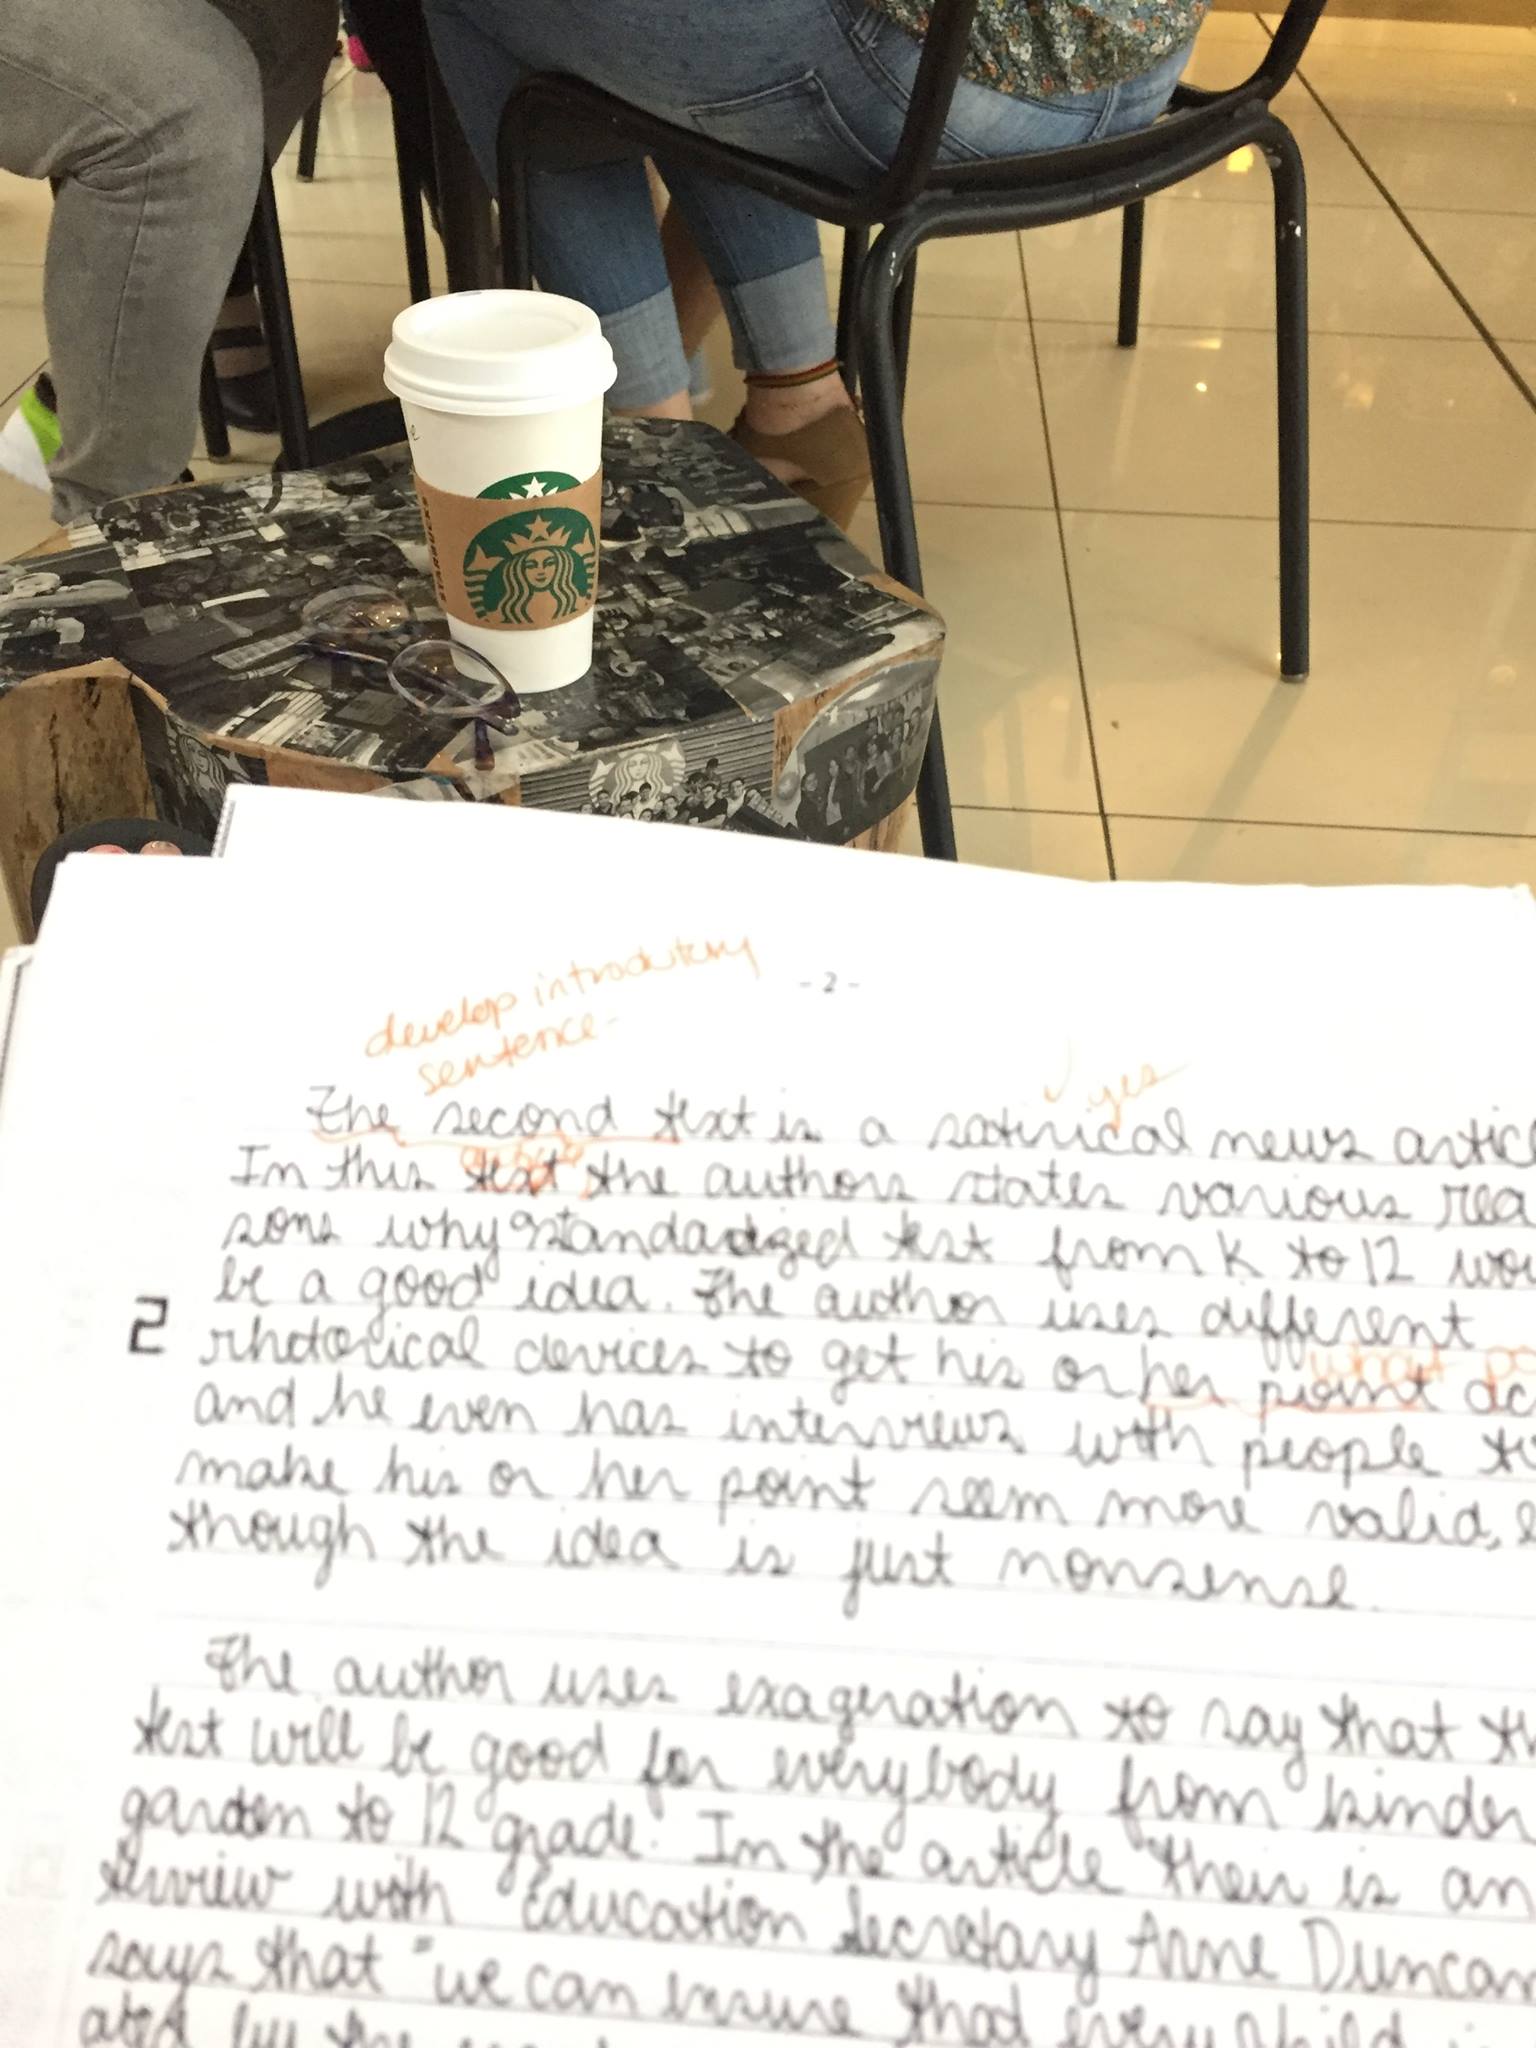 STARBUCKS
- 2 -
develop introductory
sentence-
yes
The second text is a satirical news artic
In this text the authors states various rea
sons why standardized test from K to 12 wou
be a good idea. The author uses different
what po
2
rhetorical devices to get his or her point ac
and he even has interviews with people to
make his or her point seem more valid, e
though the idea is just nonsense.
The author uses exageration to say that th
test will be good for everybody from kinder
garden to 12 grade. In the article their is an
terview with Education Secretary Arne Duncan
says that "we can ensure that every child i
ated by the